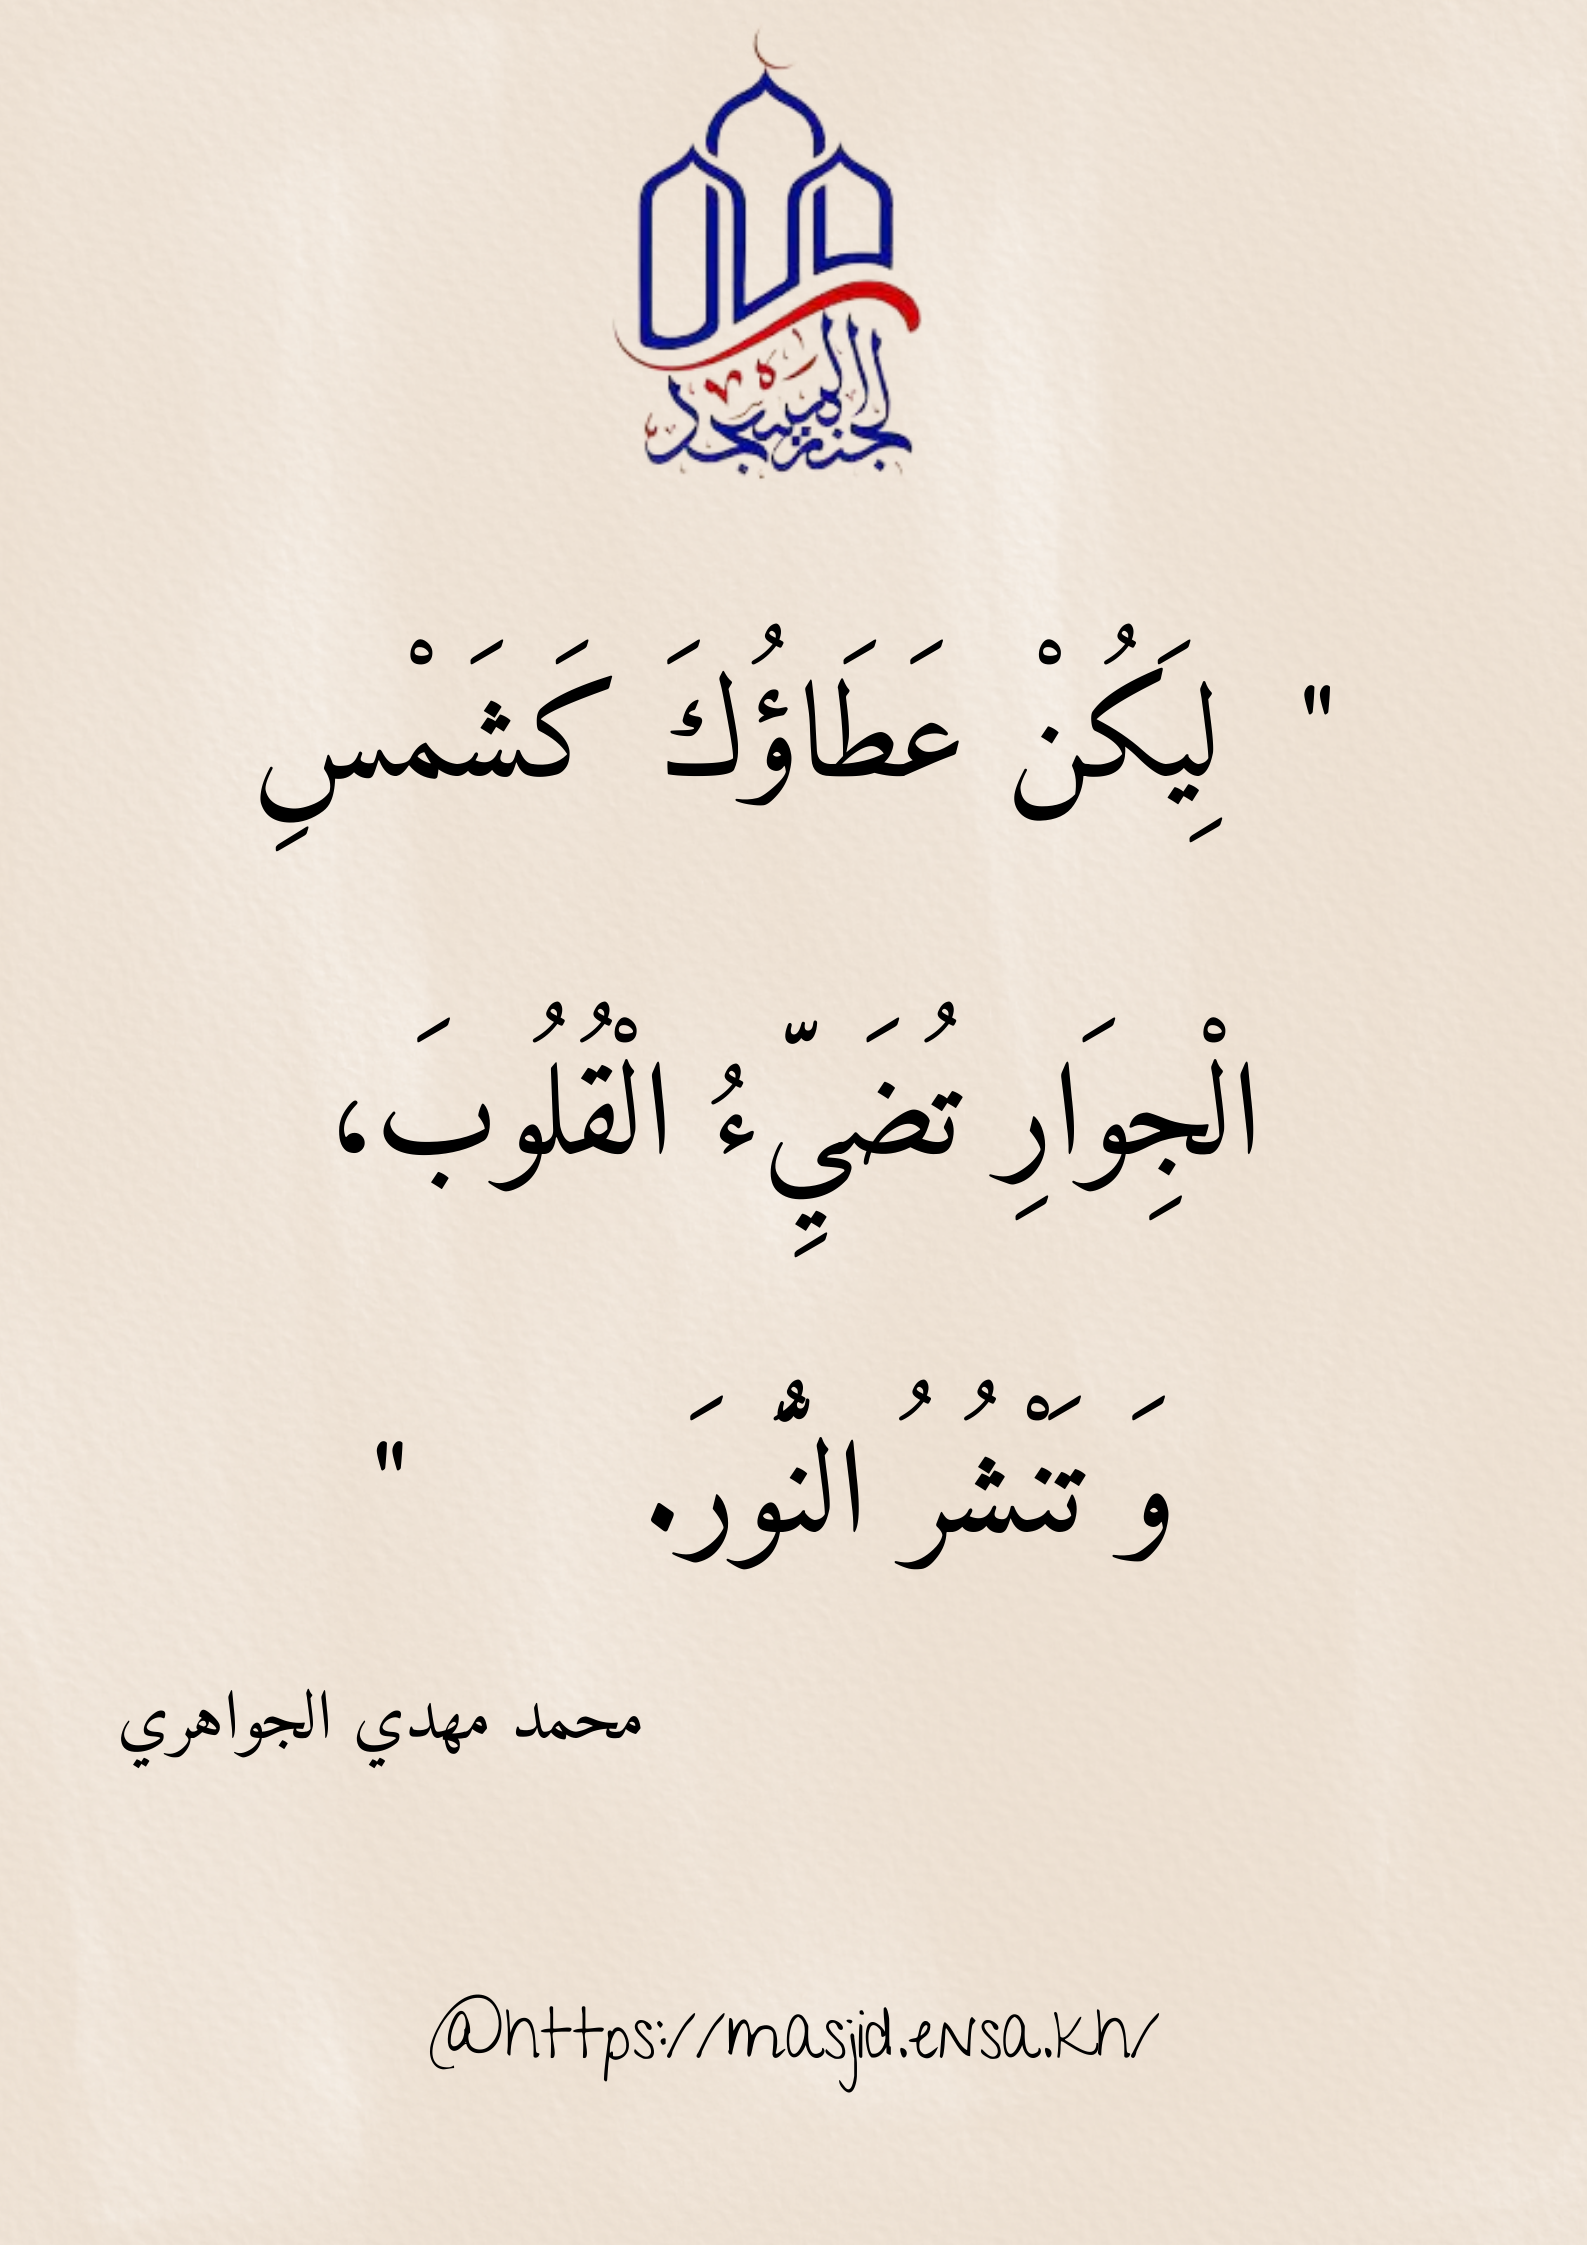 لجنة المسجد
" لِيَكُنْ عَطَاؤُكَ كَشَمْسِ
الْجِوَارِ تُضَيِّءُ الْقُلُوبَ،
وَ تَنْشُرُ النُّورَ. "
محمد مهدي الجواهري
@https://masjid.ensa.kh/